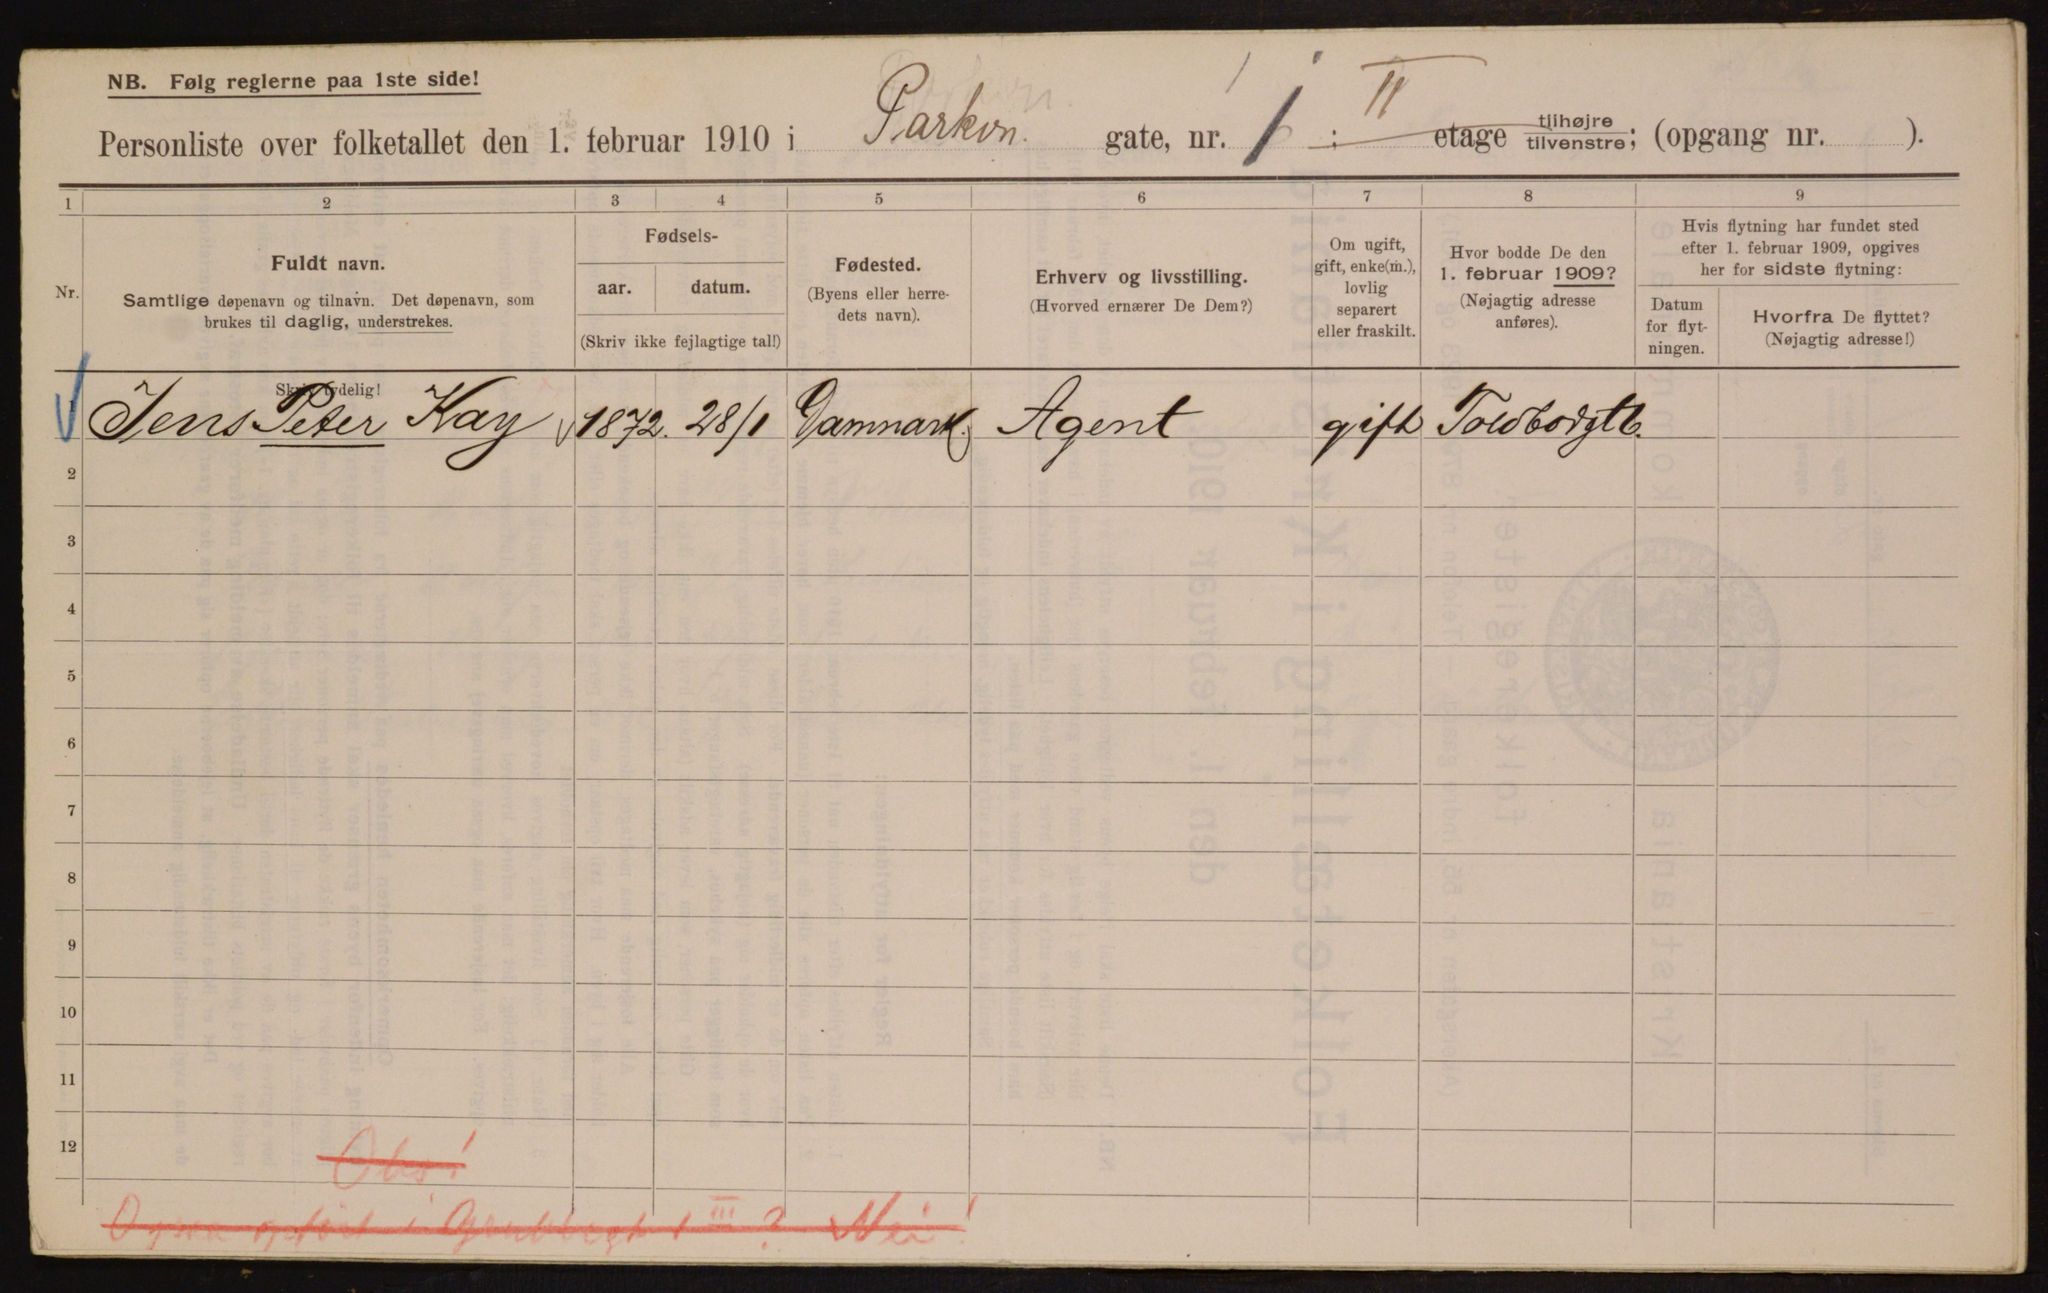 NB. Følg reglerne paa 1ste side!
Personliste over folketallet den 1. februar 1910 i Parkvn. gate, nr. 1 : II etage tilhøjre/tilvenstre; (opgang nr. ).
1 2 3 4 5 6 7 8 9
Nr.
Fuldt navn.
Samtlige døpenavn og tilnavn. Det døpenavn, som
brukes til daglig, understrekes.
Skriv tydelig!
Fødsels-
aar. datum.
(Skriv ikke fejlagtige tal!)
Fødested.
(Byens eller herre-
dets navn).
Erhverv og livsstilling.
(Hvorved ernærer De Dem?)
Om ugift,
gift, enke(m.),
lovlig
separert
eller fraskilt.
Hvor bodde De den
1. februar 1909?
(Nøjagtig adresse
anføres).
Hvis flytning har fundet sted
efter 1. februar 1909, opgives
her for sidste flytning:
Datum
for flyt-
ningen.
Hvorfra De flyttet?
(Nøjagtig adresse!)
1 Jens Peter Kay 1872. 28/1 Damnark. Agent gift Toldbodgt
2
3
4
5
6
7
8
9
10
11
12
Obs!
Ogsaa opført i Grubbegt 1 III? Nei!